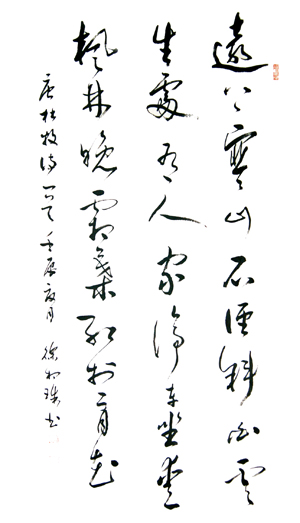 遠上寒山石徑斜白雲
生處有人家停車坐愛
楓林晚霜葉紅於二月花
唐杜牧詩一首壬辰夏月徐書